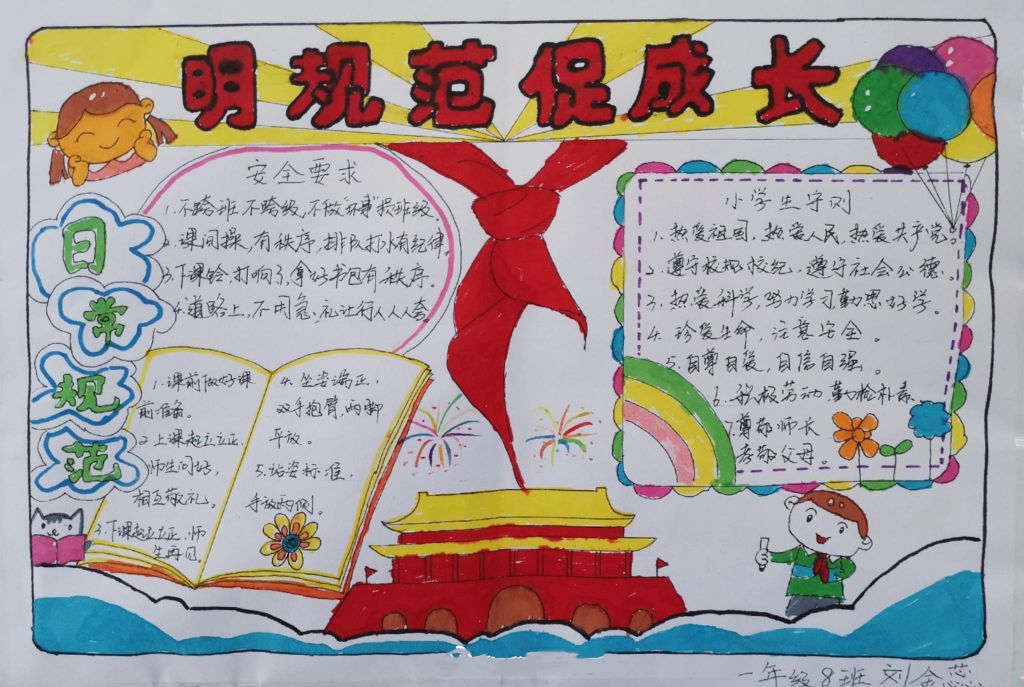 明规范促成长
日常规范
安全要求
1.不跨班,不跨级,不做"坏事"损班级.
2.课间操,有秩序,排队打水有纪律.
3.下课铃,打响了,拿好书包有秩序.
4.道路上,不用急,礼让行人人人夸。
1.课前做好课
前准备。
2.上课起立立正,
师生问好,
相互敬礼。
3.下课起立立正,师
生再见。
4.坐姿端正,
双手抱臂,两脚
平放。
5.站姿标准,
手放两侧。
小学生守则
1.热爱祖国,热爱人民,热爱共产党。
2.遵守校规校纪,遵守社会公德.
3.热爱科学,努力学习勤思好学。
4.珍爱生命,注意安全。
5.自尊自爱,自信自强。
6.积极劳动,勤俭朴素.
7.尊敬师长
孝敬父母。
一年级8班 刘金蕊